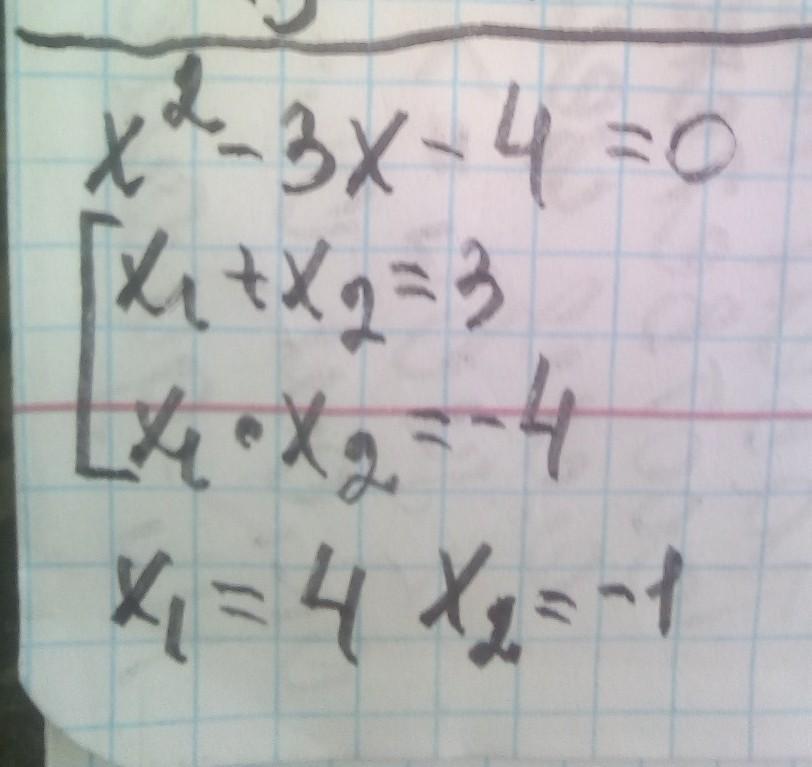 x² - 3x - 4 = 0
x₁ + x₂ = 3
x₁ • x₂ = -4
x₁ = 4 x₂ = -1